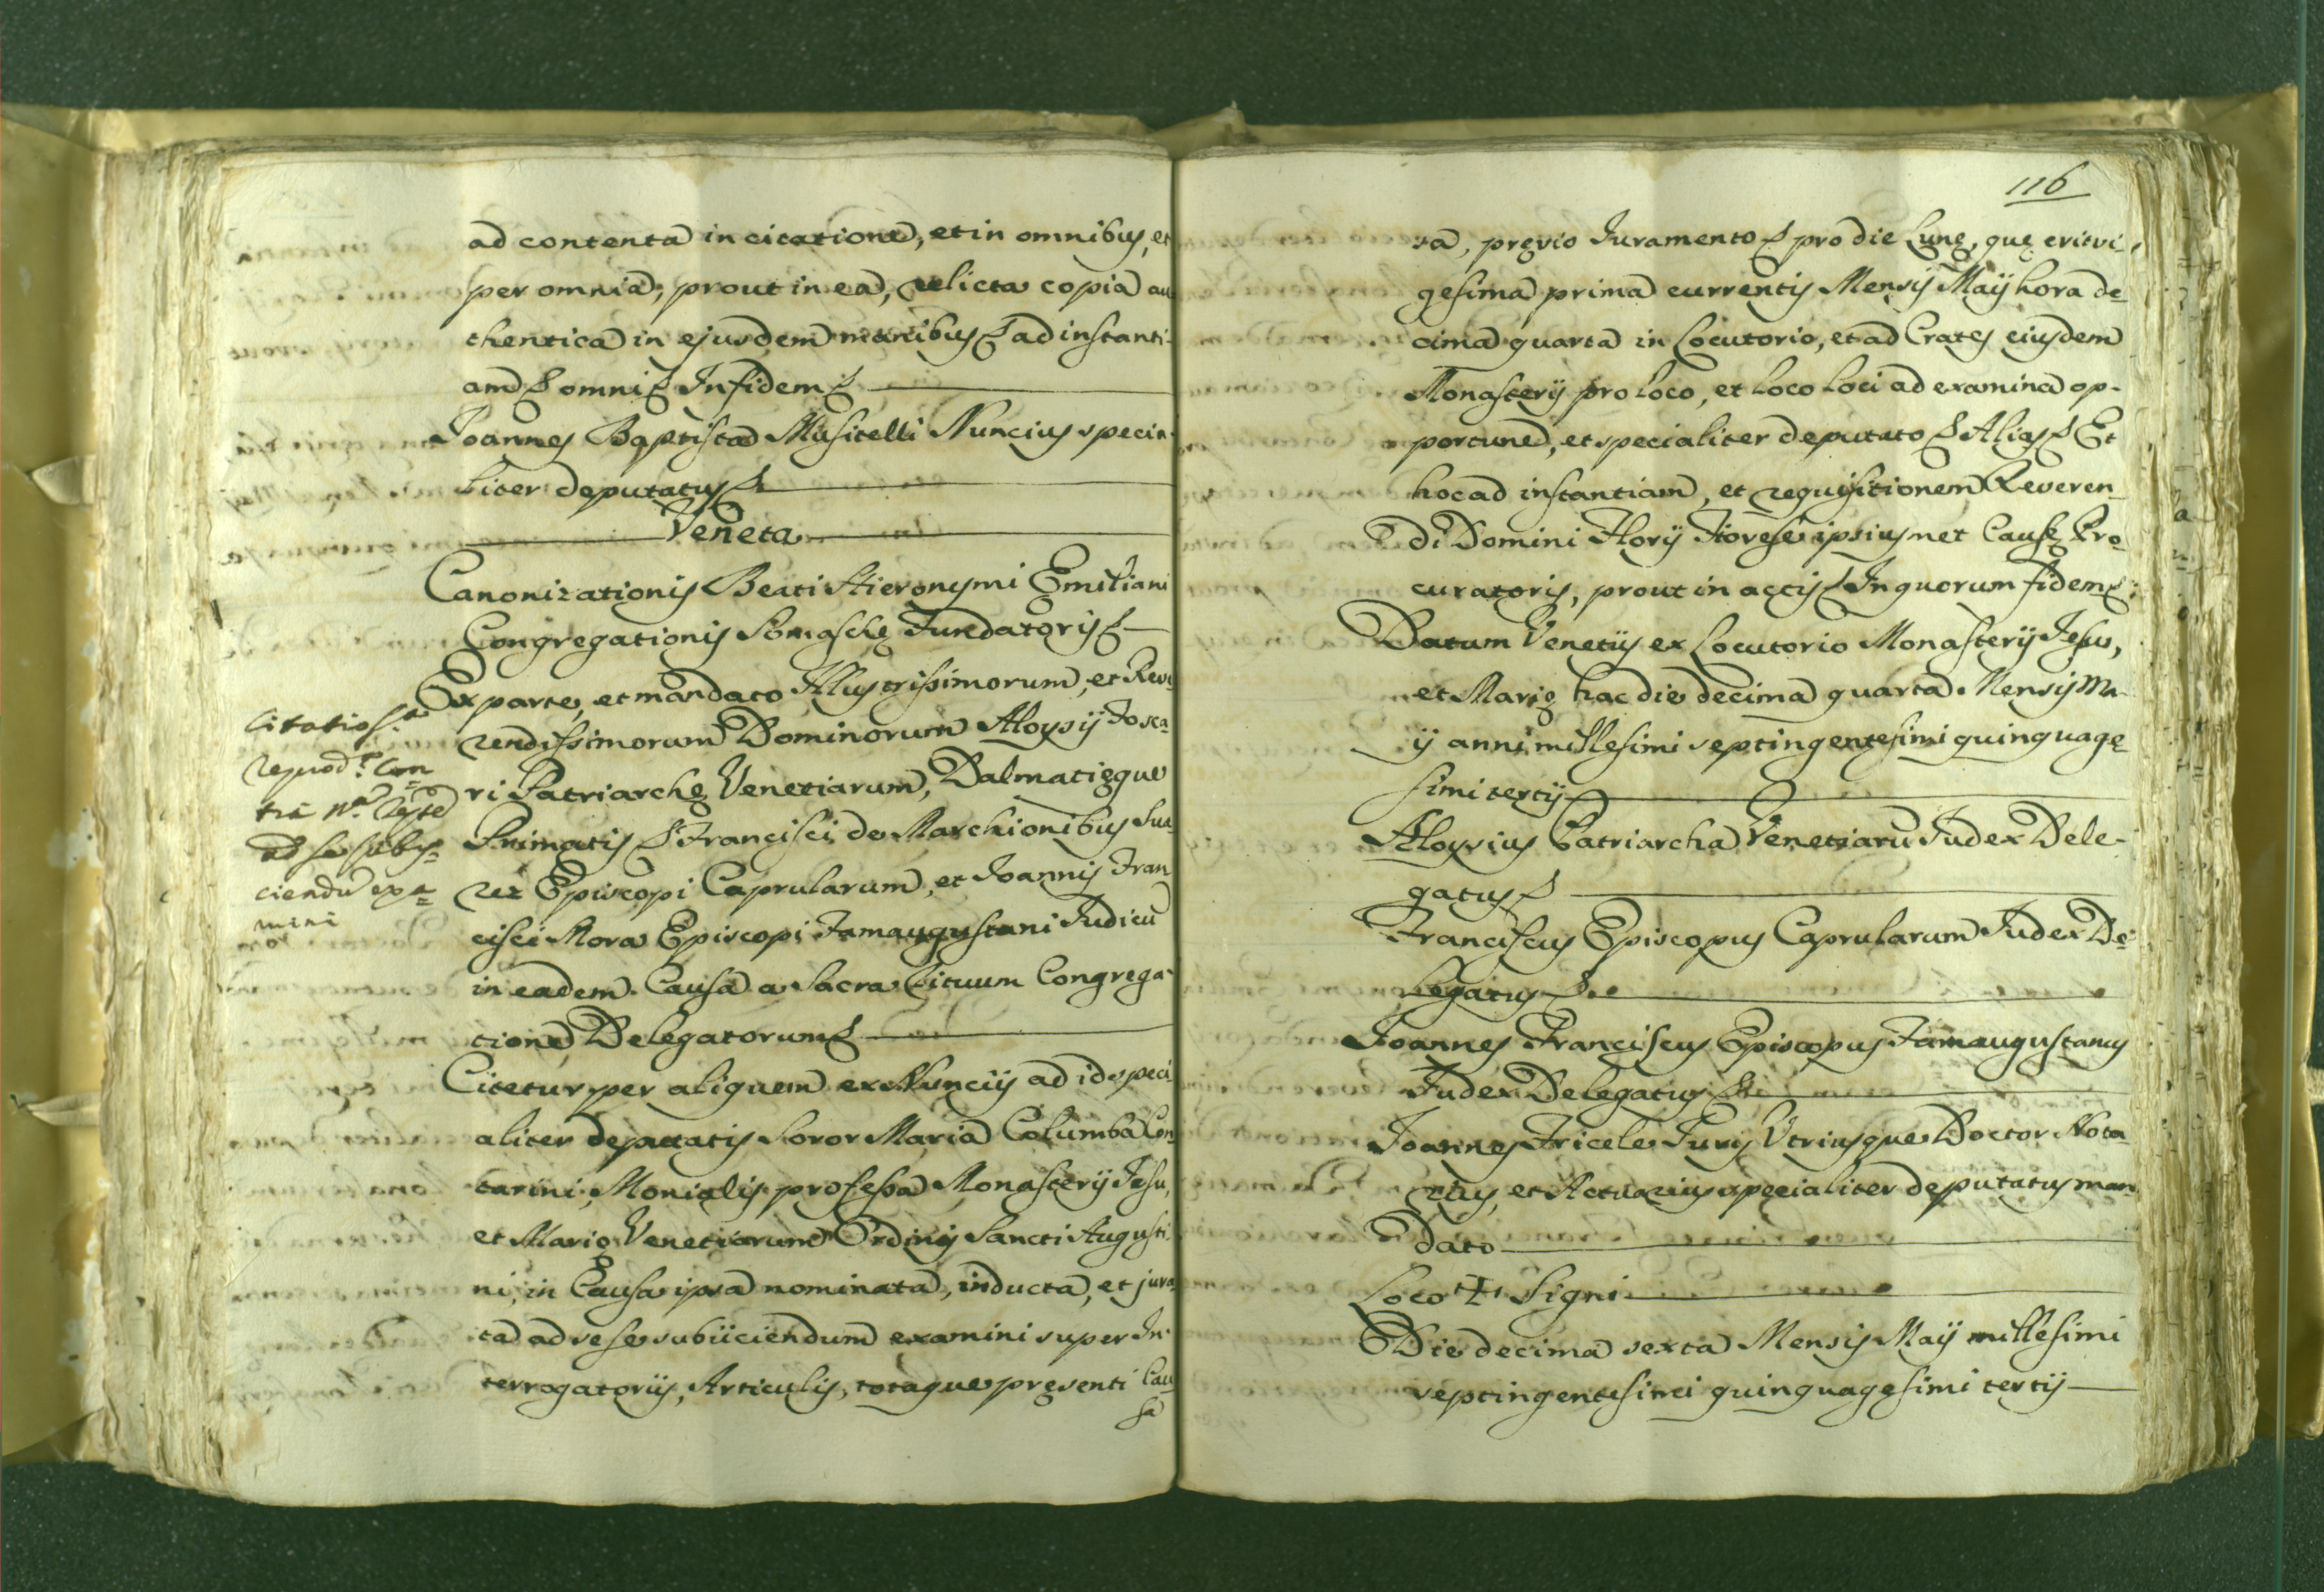 ad contenta in citatione, et in omnibus, et
per omnia, prout in ea, relicta copia au
thentica in ejusdem manibus & ad instanti-
am & omni & In fidem &
Joannes Baptista Musitelli Nuncius specia-
liter deputatus &
Veneta
Canonizationis Beati Hieronymi Emiliani
Congregationis Somaschę Fundatoris &
Ex parte, et mandato Illustrissimorum, et Reve
rendissimorum Dominorum Aloysij Fosca=
ri Patriarchę Venetiarum, Dalmatięque
Primatis & Francisci de Marchionibus Sua
rez Episcopi Caprularum, et Joannis Fran
cisci Mora Episcopi Famaugustani Judicū
in eadem Causa a Sacra Rituum Congrega-
tione Delegatorum &
Citetur per aliquem ex Nuncijs ad id speci
aliter deputatis Soror Maria Columba Con
tarini, Monialis professa Monasterij Jesu,
et Marię Venetiarum Ordinis Sancti Augusti
ni, in Causa ipsa nominata, inducta, et jura
ta ad sese subijciendum examini super In-
terrogatorijs, Articulis, totaque pręsenti Cau
sa
Citatio
reprod.ta Con
tra
ad se subij=
ciendū exa=
mini
116
sa, pręvio Juramento & pro die Lunę, quę erit vi-
gesima prima currentis Mensis Maij hora de
cima quarta in Locutorio, et ad Crates eiusdem
Monasterij pro loco, et loco loci ad examina op-
portune, et specialiter deputato & Alias & Et
hoc ad instantiam, et requisitionem Reveren
di Domini Florij ipsiusmet Causę Pro
curatoris, prout in actis & In quorum fidem &
Datum Venetijs ex Locutorio Monasterij Jesu,
et Marię hac die decima quarta Mensis Ma
ij anni millesimi septingentesimi quinquage
simi tertij
Aloysius Patriarcha Venetiarū Judex Dele-
gatus &
Franciscus Episcopus Caprularum Judex De=
legatus &
Joannes Franciscus Episcopus Famaugustanus
Judex Delegatus &
Joannes Fricele Juris Utriusque Doctor Nota
rius, et Actuarius specialiter deputatus man
dato
Loco + Signi
Die decima sexta Mensis Maij millesimi
septingentesimi quinquagesimi tertij